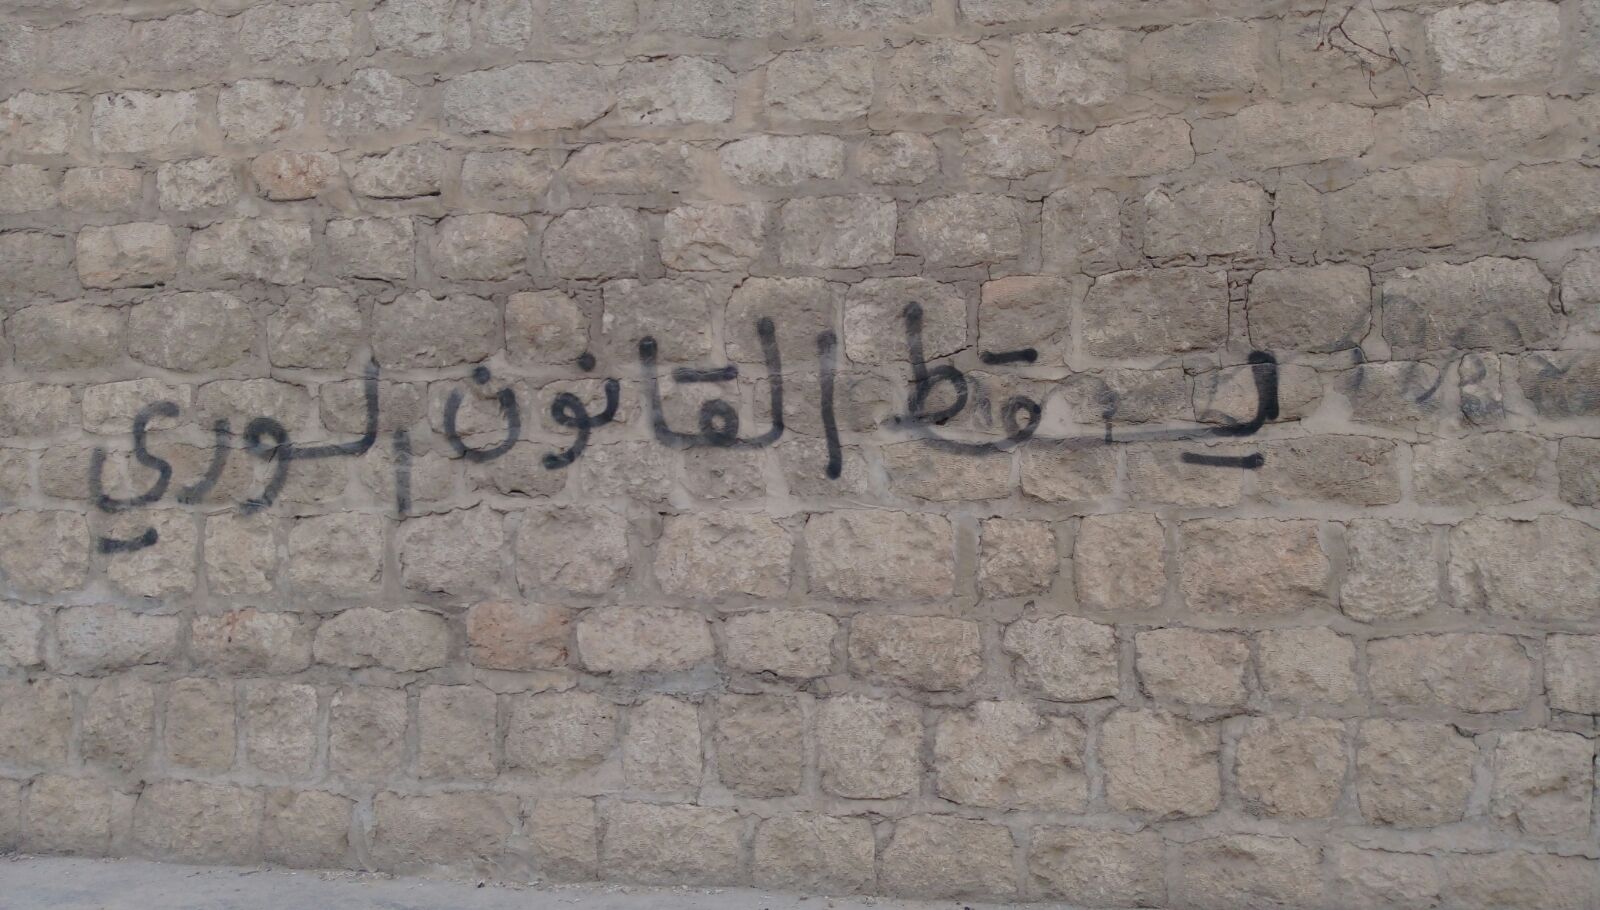 ليسقط القانون السوري